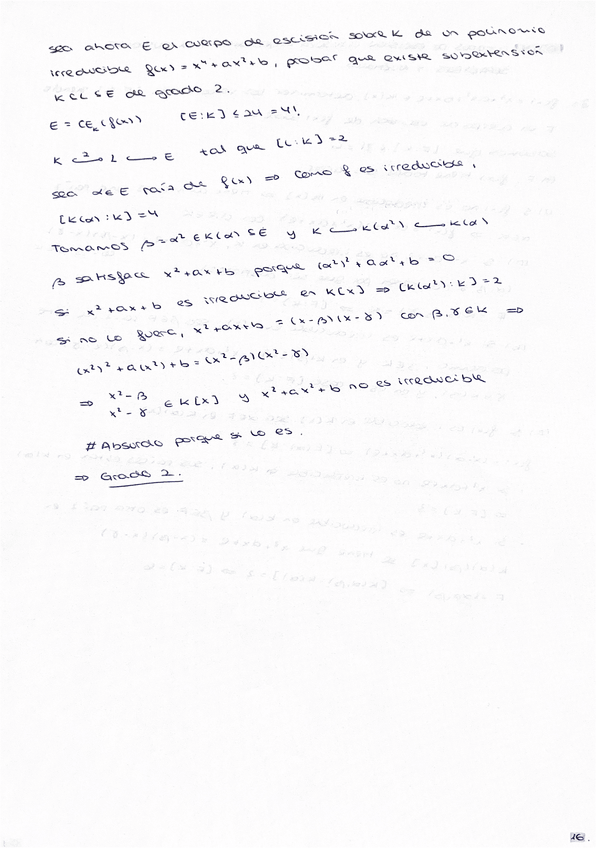 sea ahora E el cuerpo de escisión sobre K de un polinomio
irreducible f(x) = x⁴ + ax² + b, probar que existe subextensión
K ⊂ L ⊆ E de grado 2.
E = CE_K(f(x)) [E:K] ≤ 24 = 4!
K ↪² L ↪ E tal que [L:K] = 2
sea α ∈ E raíz de f(x) ⇒ como f es irreducible,
[K(α):K] = 4
Tomamos β = α² ∈ K(α) ⊆ E y K ↪ K(α²) ↪ K(α)
β satisface x² + ax + b porque (α²)² + aα² + b = 0
si x² + ax + b es irreducible en K[x] ⇒ [K(α²):K] = 2
si no lo fuera, x² + ax + b = (x-β)(x-γ) con β,γ ∈ K ⇒
(x²)² + a(x²) + b = (x²-β)(x²-γ)
⇒ x²-β
x²-γ ∈ K[x] y x² + ax² + b no es irreducible
# Absurdo porque si lo es.
⇒ Grado 2.
16.